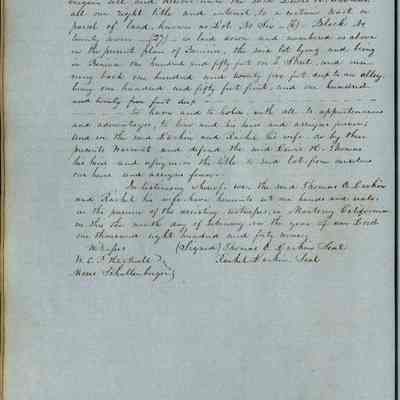 all our right title and interest to a certain tract or
parcel of land, known as Lot No Six (6) - Block No
twenty seven - 27 - as laid down and numbered as above
in the present plan of Benicia, the said lot lying and being
in Benicia one hundred and fifty feet on L Street, and run-
ning back one hundred and twenty five feet deep to an alley
being one hundred and fifty feet front, and one hundred
and twenty five feet deep
to have and to hold, with all its appurtenances
and advantages, to him and his heirs and assigns forever
and we the said Larkin and Rachel his wife do by these
presents warrant and defend the said Lewis H. Thomas
his heirs and assigns in the title to said lot from ourselves
our heirs and assigns forever.
In testimony whereof we the said Thomas O. Larkin
and Rachel his wife have hereunto set our hands and seals
in the presence of the assisting witnesses, in Monterey California
on this the ninth day of February in the year of our Lord
one thousand eight hundred and forty nine
Witness (Signed) Thomas O. Larkin Seal
Rachel Larkin Seal
Moses Schallenberger